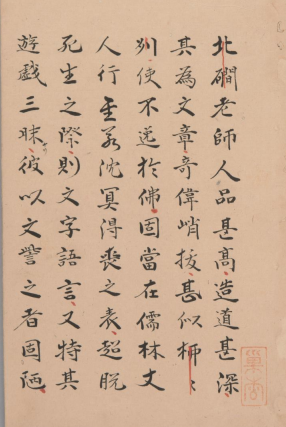 北磵老師人品甚高造道甚深
其為文章奇偉峭拔甚似柳〻
州使不逃於佛固當在儒林丈
人行至若沈冥得喪之表超脱
死生之際則文字語言又特其
遊戯三昧彼以文譽之者固陋